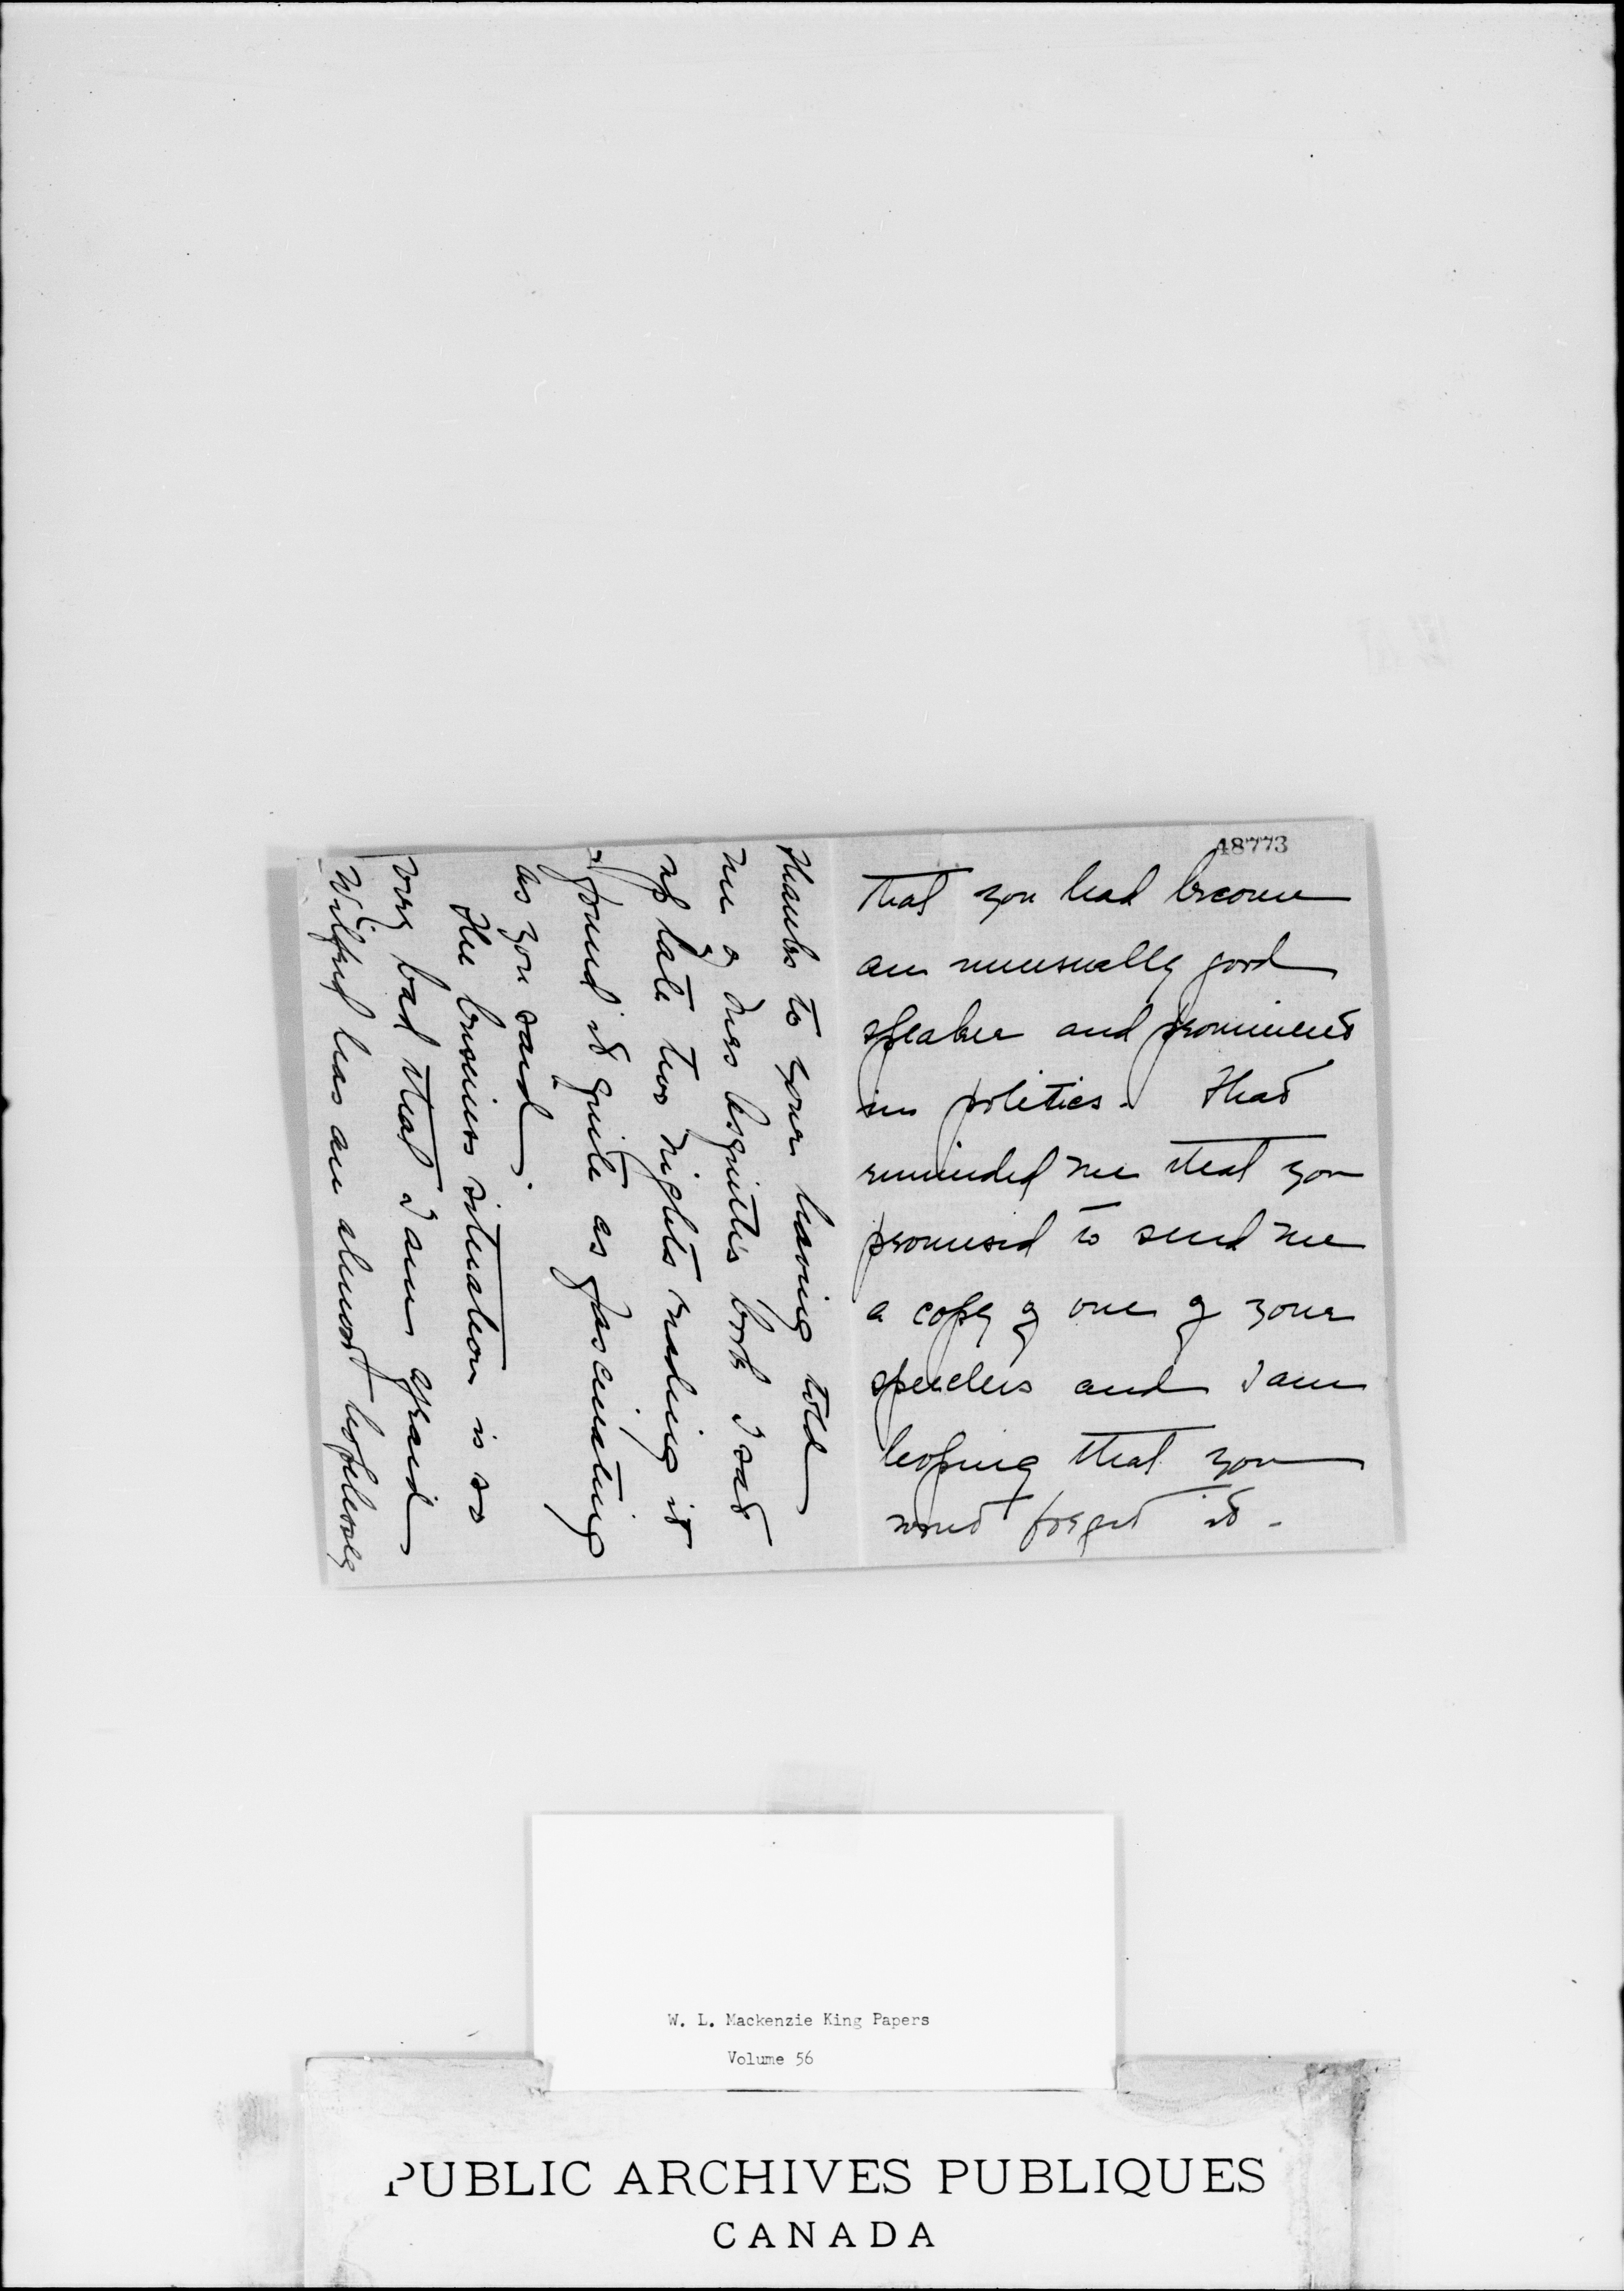 48773
that you had become
an unusually good
speaker and prominent
in politics. That
reminded me that you
promised to send me
a copy of one of your
speeches and I am
hoping that you
wont forget it -
Thanks to your having told
me of Mrs Asquith's book I sat
up late two nights reading it
& found it quite as fascinating
as you said.
The business situation is so
very bad that I am afraid
Wilfred has an almost hopelessly
W. L. Mackenzie King Papers
Volume 56
PUBLIC ARCHIVES PUBLIQUES
CANADA